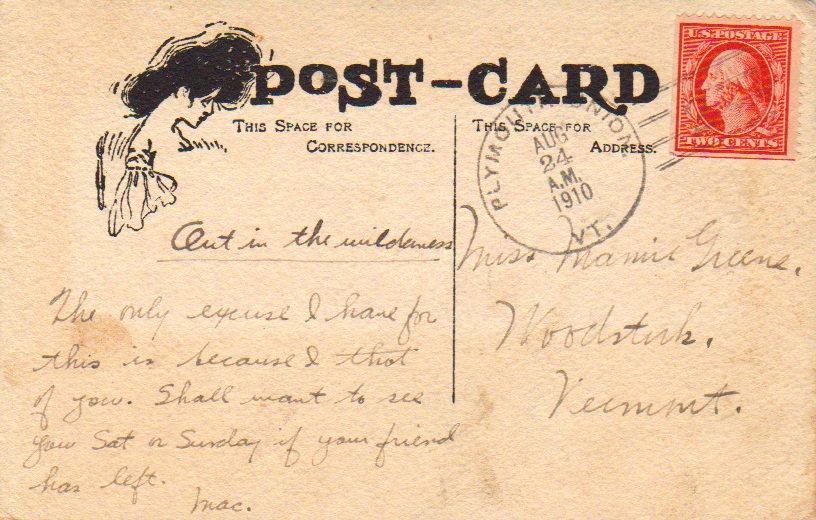 POST-CARD
THIS SPACE FOR
CORRESPONDENCE.
THIS SPACE FOR
ADDRESS.
U.S. POSTAGE
TWO CENTS
PLYMOUTH UNION
AUG
24
A.M.
1910
VT.
Out in the wilderness
The only excuse I have for
this is because I thot
of you. Shall want to see
you Sat or Sunday if your friend
has left.
Mac.
Miss Mamie Greene.
Woodstock.
Vermont.